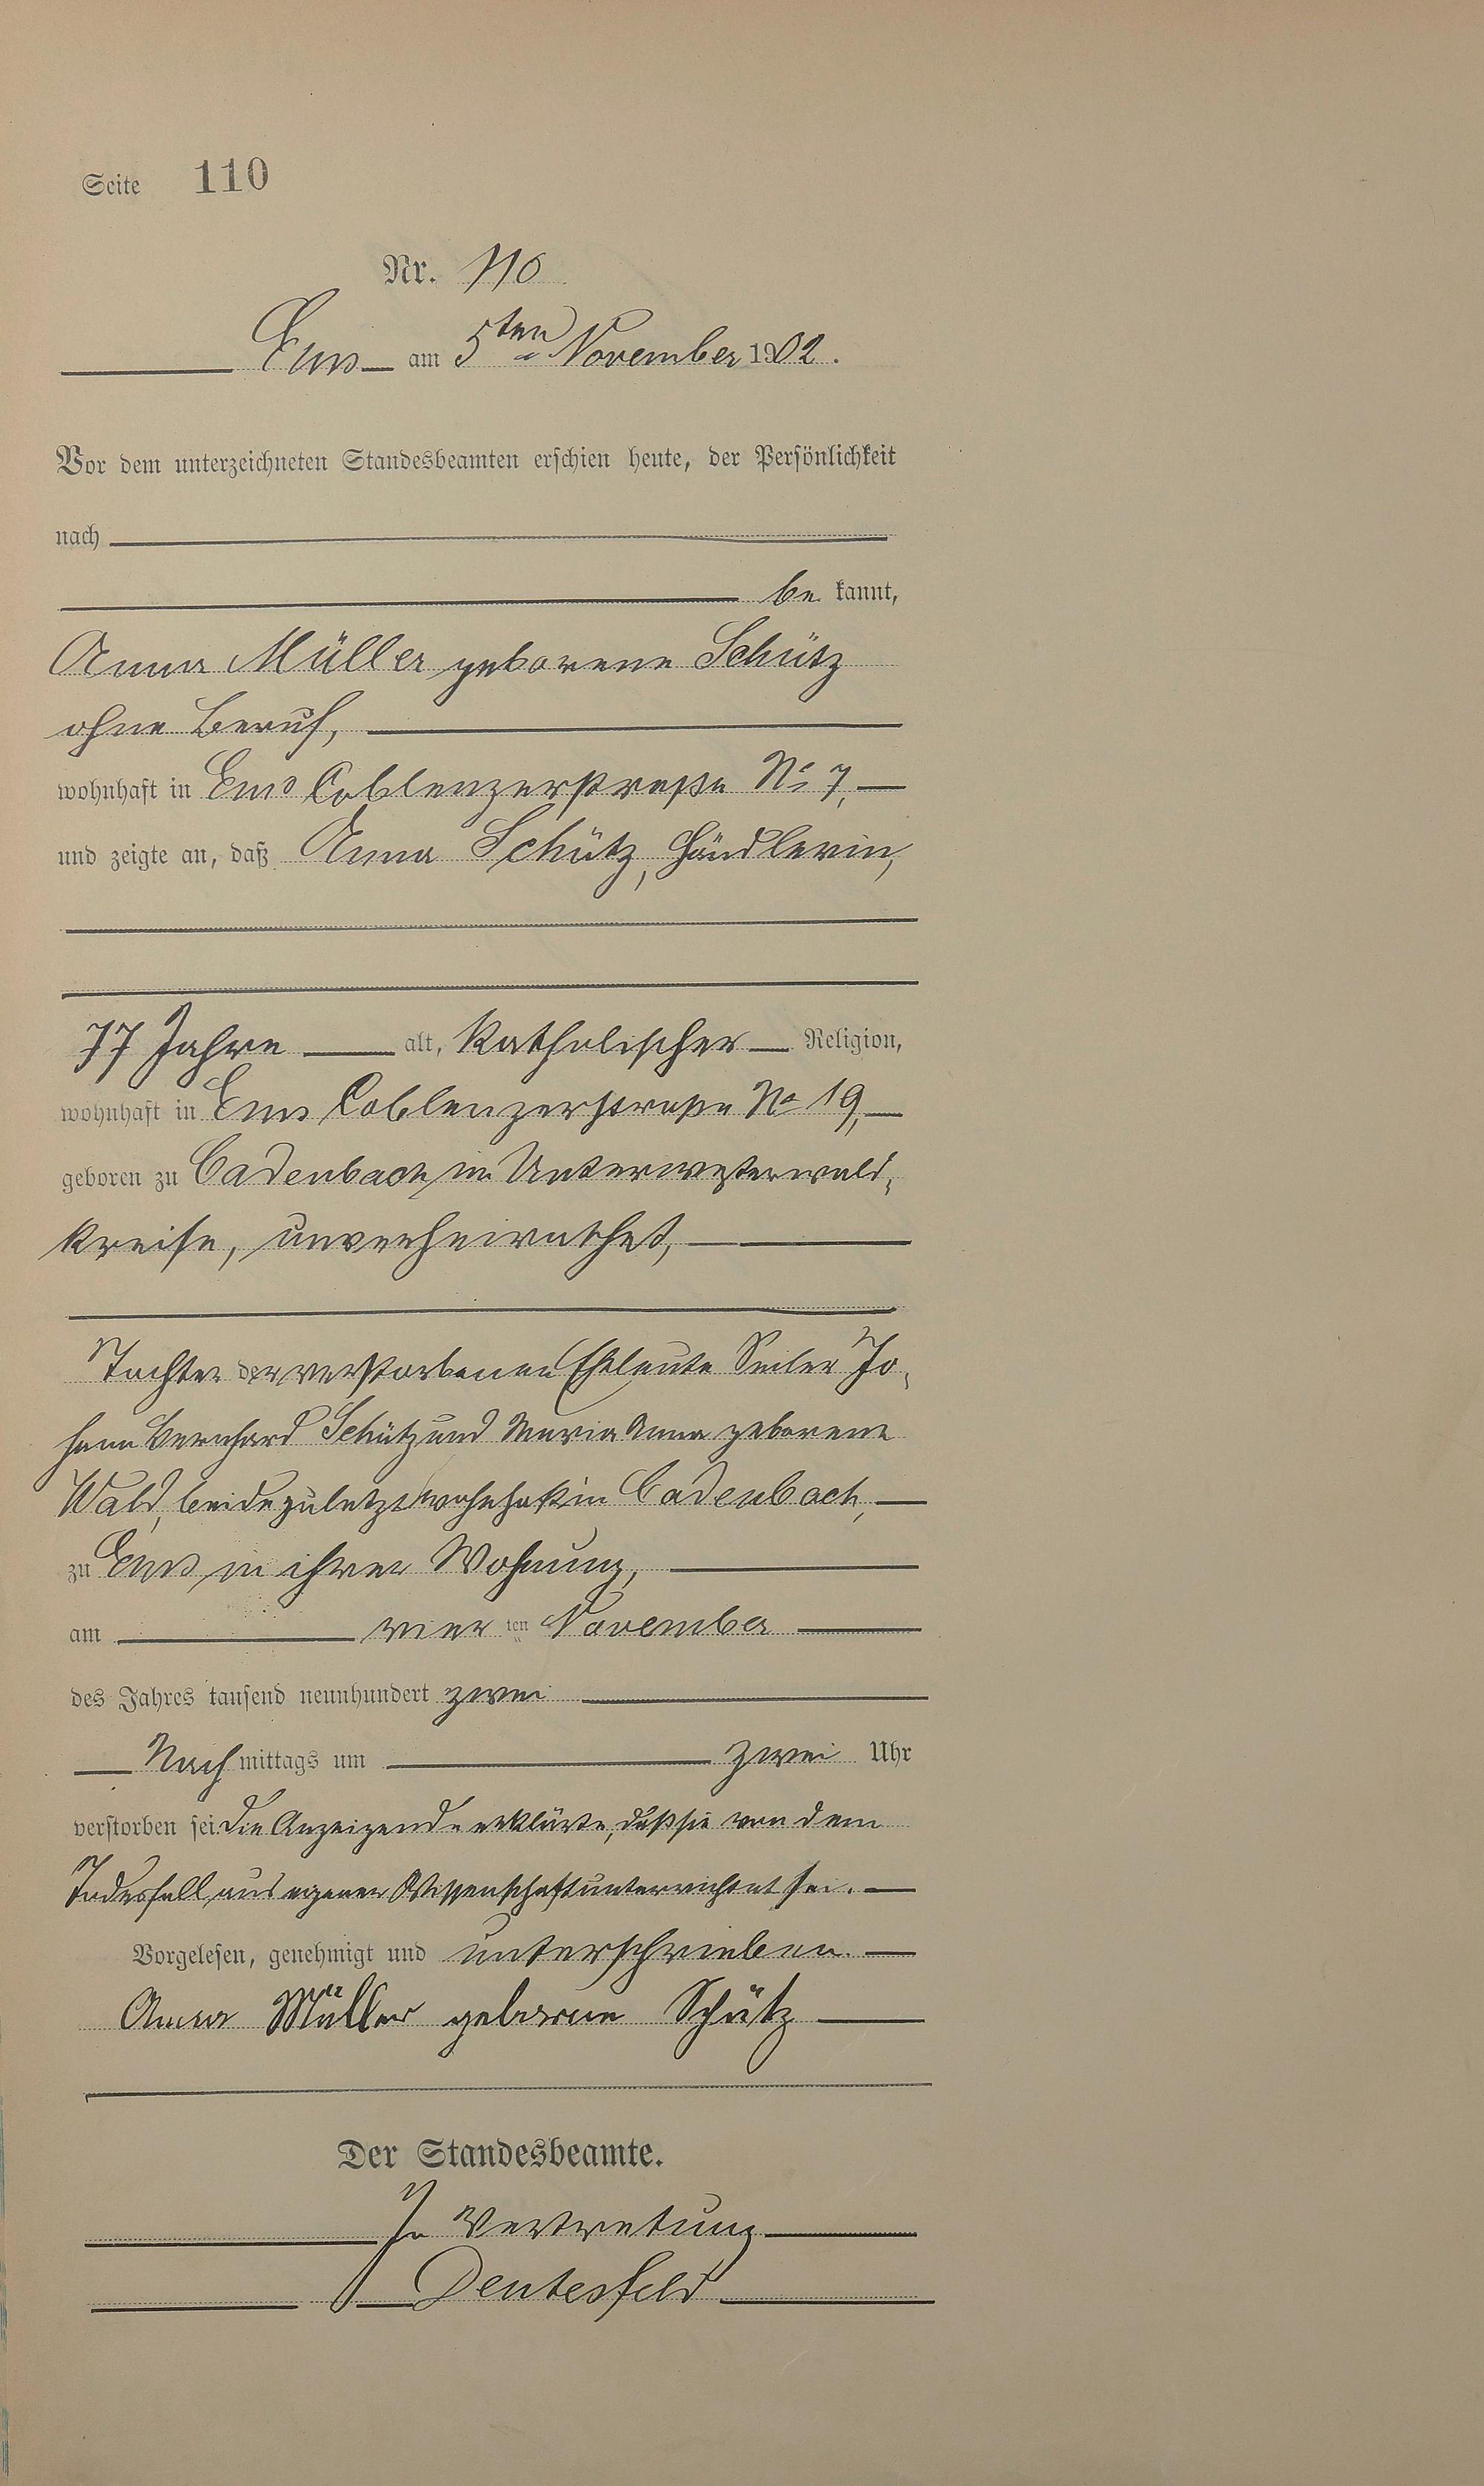 Seite 110
Nr. 110
Ems am 5ten November 1902.
Vor dem unterzeichneten Standesbeamten erschien heute, der Persönlichkeit
nach
be kannt,
Anna Müller geborene Schütz
ohne Beruf,
wohnhaft in Ems Coblenzerstraße No 7,
und zeigte an, daß Anna Schütz, Händlerin,
77 Jahre alt, katholischer Religion,
wohnhaft in Ems Coblenzerstraße No 19,
geboren zu Cadenbach im Unterwesterwald-
kreise, unverheirathet,
Tochter der verstorbenen Eheleute Seiler Jo-
hann Bernhard Schütz und Maria Anna geborene
Wald, beide zuletzt wohnhaft in Cadenbach,
zu Ems in ihrer Wohnung,
am vier ten November
des Jahres tausend neunhundert zwei
Nach mittags um zwei Uhr
verstorben sei. Die Anzeigende erklärte, daß sie von dem
Todesfall aus eigener Wissenschaft unterrichtet sei.
Vorgelesen, genehmigt und unterschrieben.
Anna Müller geborene Schütz
Der Standesbeamte.
In Vertretung
Dentesfeld